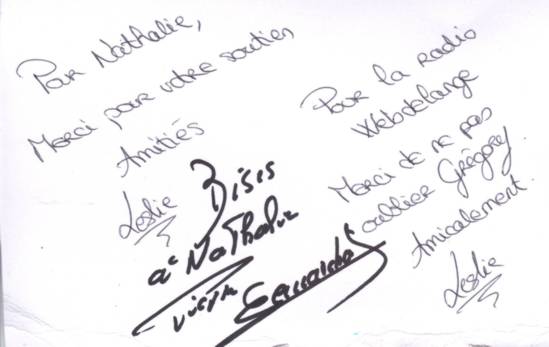 Pour Nathalie,
Merci pour votre soutien
Amitiés
Leslie
Bisis
a Nathalie
Pour la radio
Webdelange
Merci de ne pas
oublier Grégory.
Amicalement.
Leslie